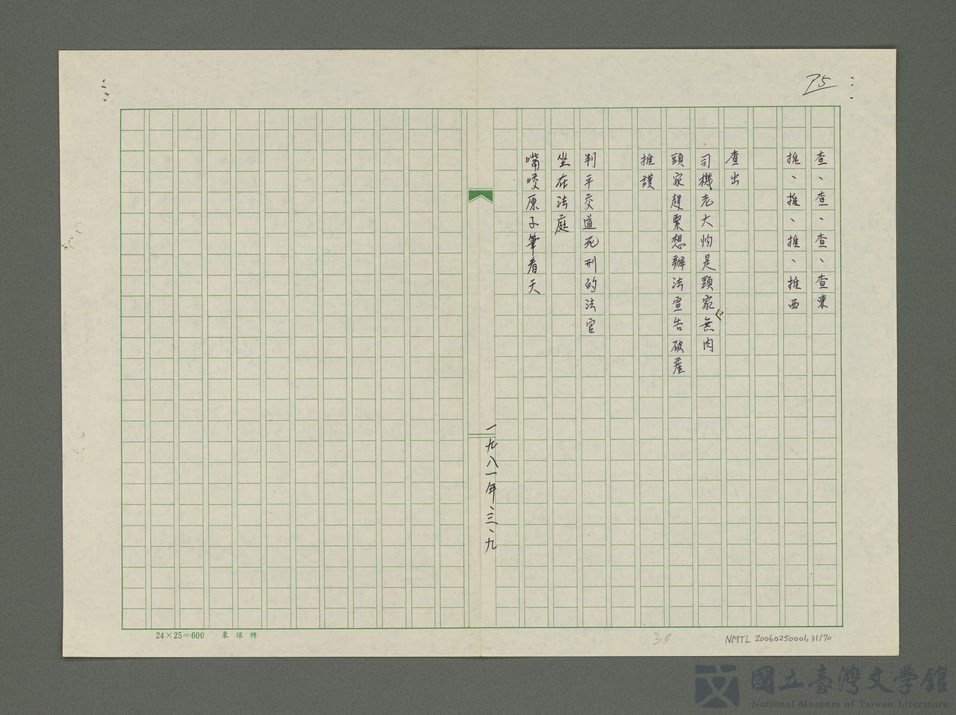 75
查、查、查、查東
推、推、推、推西
查出
司機老大怕是頭家無肉
頭家趕緊想辦法宣告破產
推護
判平交道死刑的法官
坐在法庭
嘴咬原子筆看天
一九八一年、三、九
24×25=600
30
NMTL 20060250001,31/70
國立臺灣文學館
National Museum of Taiwan Literature